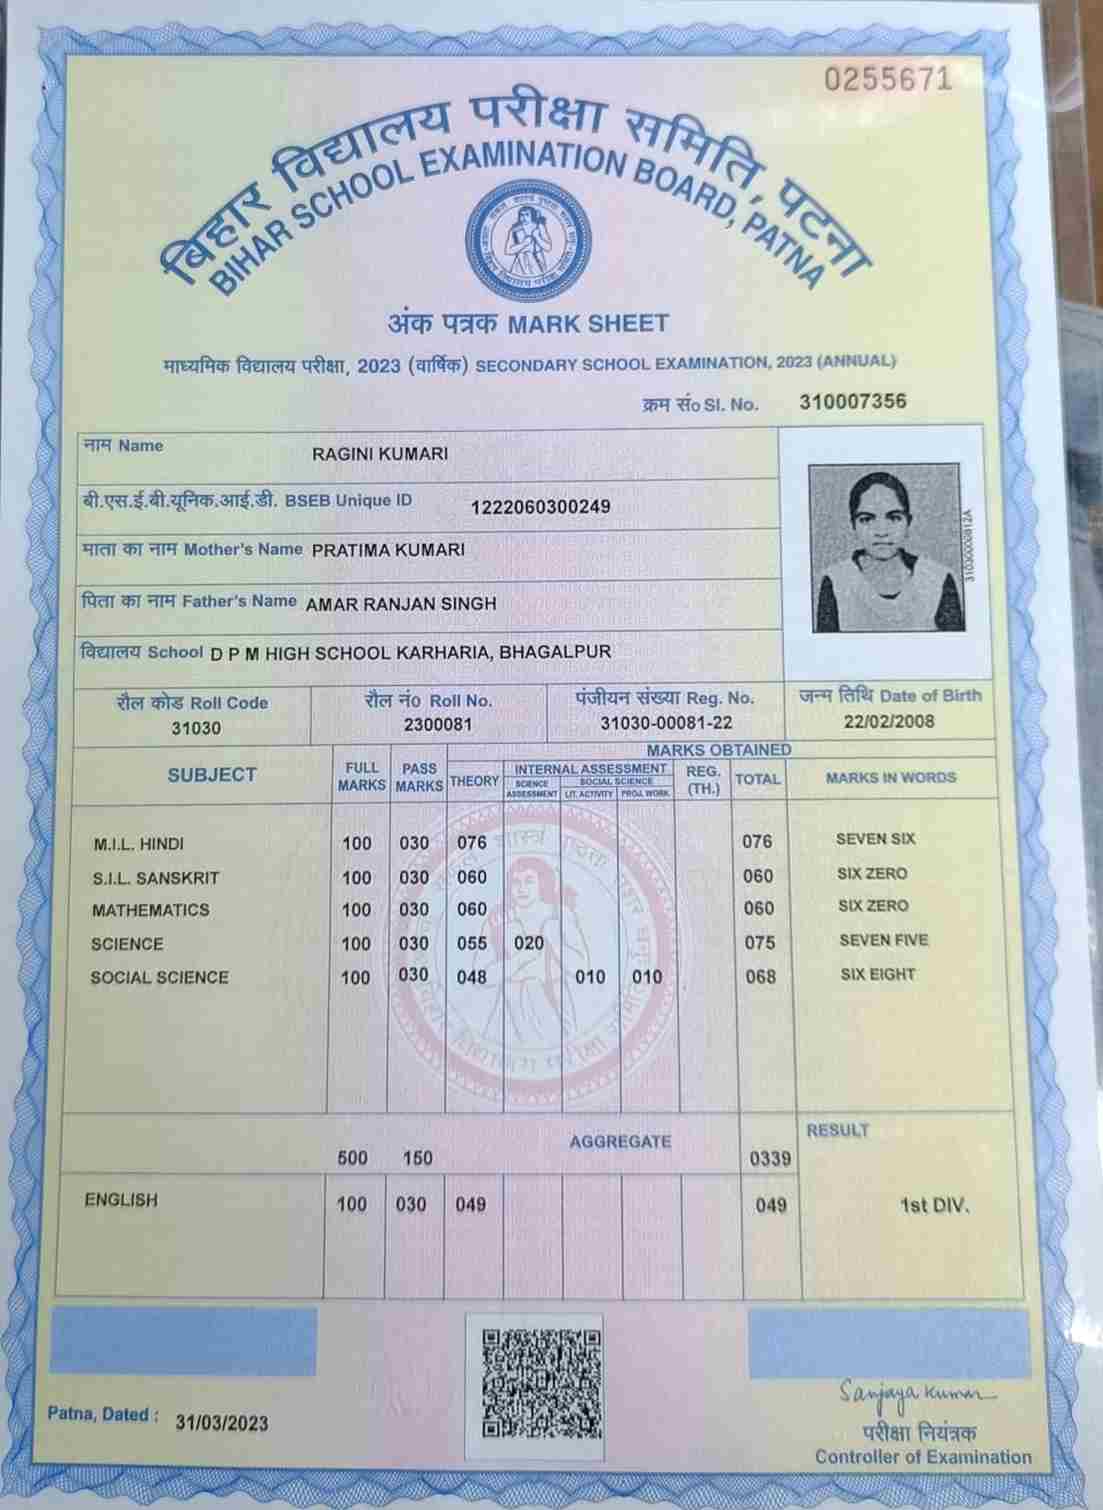 0255671
बिहार विद्यालय परीक्षा समिति, पटना
BIHAR SCHOOL EXAMINATION BOARD, PATNA
अंक पत्रक MARK SHEET
माध्यमिक विद्यालय परीक्षा, 2023 (वार्षिक) SECONDARY SCHOOL EXAMINATION, 2023 (ANNUAL)
क्रम सं० Sl. No. 310007356
नाम Name RAGINI KUMARI
बी.एस.ई.बी.यूनिक.आई.डी. BSEB Unique ID 1222060300249
माता का नाम Mother's Name PRATIMA KUMARI
पिता का नाम Father's Name AMAR RANJAN SINGH
विद्यालय School D P M HIGH SCHOOL KARHARIA, BHAGALPUR
3103000812A
रौल कोड Roll Code रौल नं० Roll No. पंजीयन संख्या Reg. No. जन्म तिथि Date of Birth
31030 2300081 31030-00081-22 22/02/2008
MARKS OBTAINED
SUBJECT FULL MARKS PASS MARKS THEORY INTERNAL ASSESSMENT REG. (TH.) TOTAL MARKS IN WORDS
SCIENCE ASSESSMENT SOCIAL SCIENCE
LIT. ACTIVITY PROJ. WORK
M.I.L. HINDI 100 030 076 076 SEVEN SIX
S.I.L. SANSKRIT 100 030 060 060 SIX ZERO
MATHEMATICS 100 030 060 060 SIX ZERO
SCIENCE 100 030 055 020 075 SEVEN FIVE
SOCIAL SCIENCE 100 030 048 010 010 068 SIX EIGHT
AGGREGATE RESULT
500 150 0339
ENGLISH 100 030 049 049 1st DIV.
Sanjaya Kumar
Patna, Dated : 31/03/2023
परीक्षा नियंत्रक
Controller of Examination